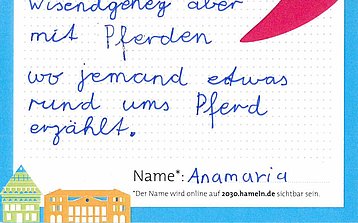 Wisendgeheg aber
mit Pferden
wo jemand etwas
rund ums Pferd
erzählt.
Name*: Anamaria
*Der Name wird online auf 2030.hameln.de sichtbar sein.